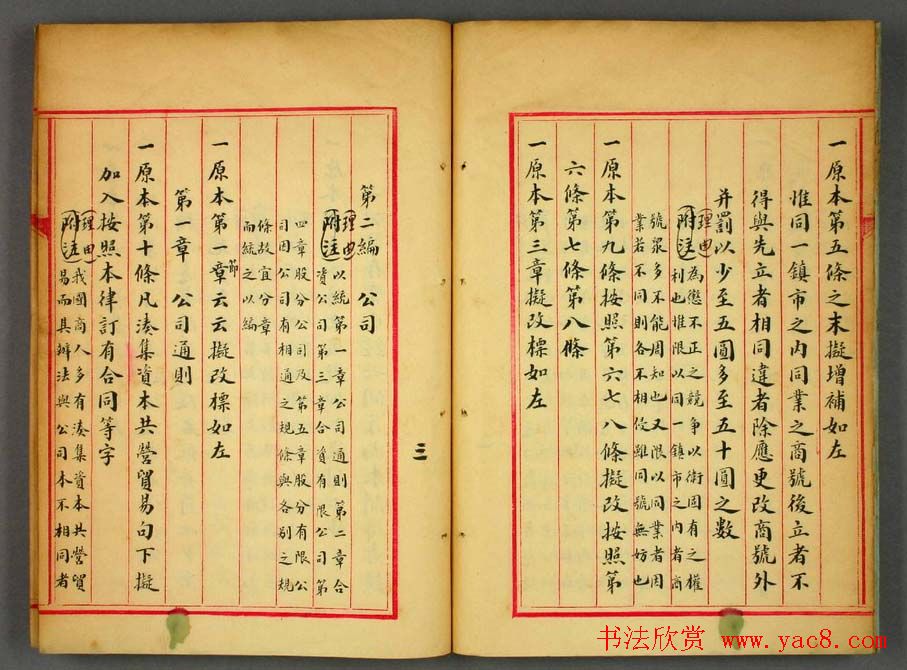 一原本第五條之末擬增補如左
惟同一鎮市之内同業之商號後立者不
得與先立者相同違者除應更改商號外
并罰以少至五圓多至五十圓之數
理由
附注
為懲不正之競争以衛固有之權
利也惟限以同一鎮市之内者商
號衆多不能周知也又限以同業者因
業若不同則各不相侵雖同號無妨也
一原本第九條按照第六七八條擬改按照第
六條第七條第八條
一原本第三章擬改標如左
三
第二編 公司
理由
附注
以統第一章公司通則第二章合
資公司第三章合資有限公司第
四章股分公司及第五章股分有限公
司因公司有相通之規條與各别之規
條故宜分章
而統之以編
一原本第一章節云云擬改標如左
第一章 公司通則
一原本第十條凡湊集資本共營貿易句下擬
加入按照本律訂有合同等字
理由
附注
我國商人多有湊集資本共營貿
易而其辦法與公司本不相同者
书法欣赏 www.yac8.com